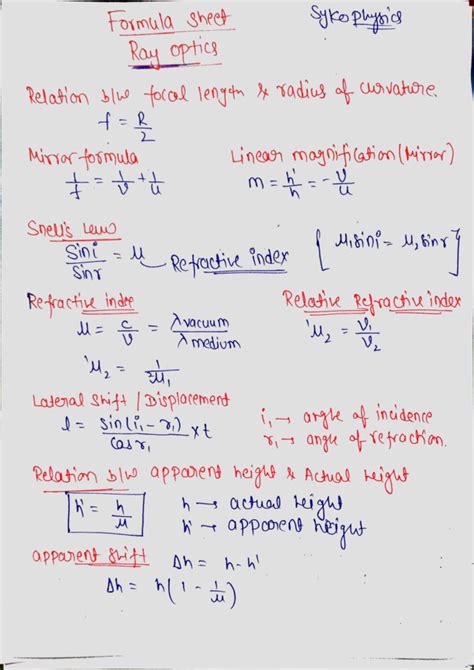 Formula sheet
Sykophysics
Ray optics
Relation b/w focal length & radius of curvature.
f = R/2
Mirror formula
Linear magnification (Mirror)
1/f = 1/v + 1/u
m = h'/h = -v/u
Snell's Law
Sin i/Sin r = μ Refractive index
[ μ₁ sin i = μ₂ sin r ]
Refractive index
Relative Refractive index
μ = c/v = λ vacuum/λ medium
¹μ₂ = v₁/v₂
¹μ₂ = 1/²μ₁
Lateral Shift / Displacement
l = sin(i₁ - r₁)/cos r₁ × t
i₁ → angle of incidence
r₁ → angle of refraction.
Relation b/w apparent height & Actual height
h' = h/μ
h → actual height
h' → apparent height
apparent shift
Δh = h - h'
Δh = h(1 - 1/μ)